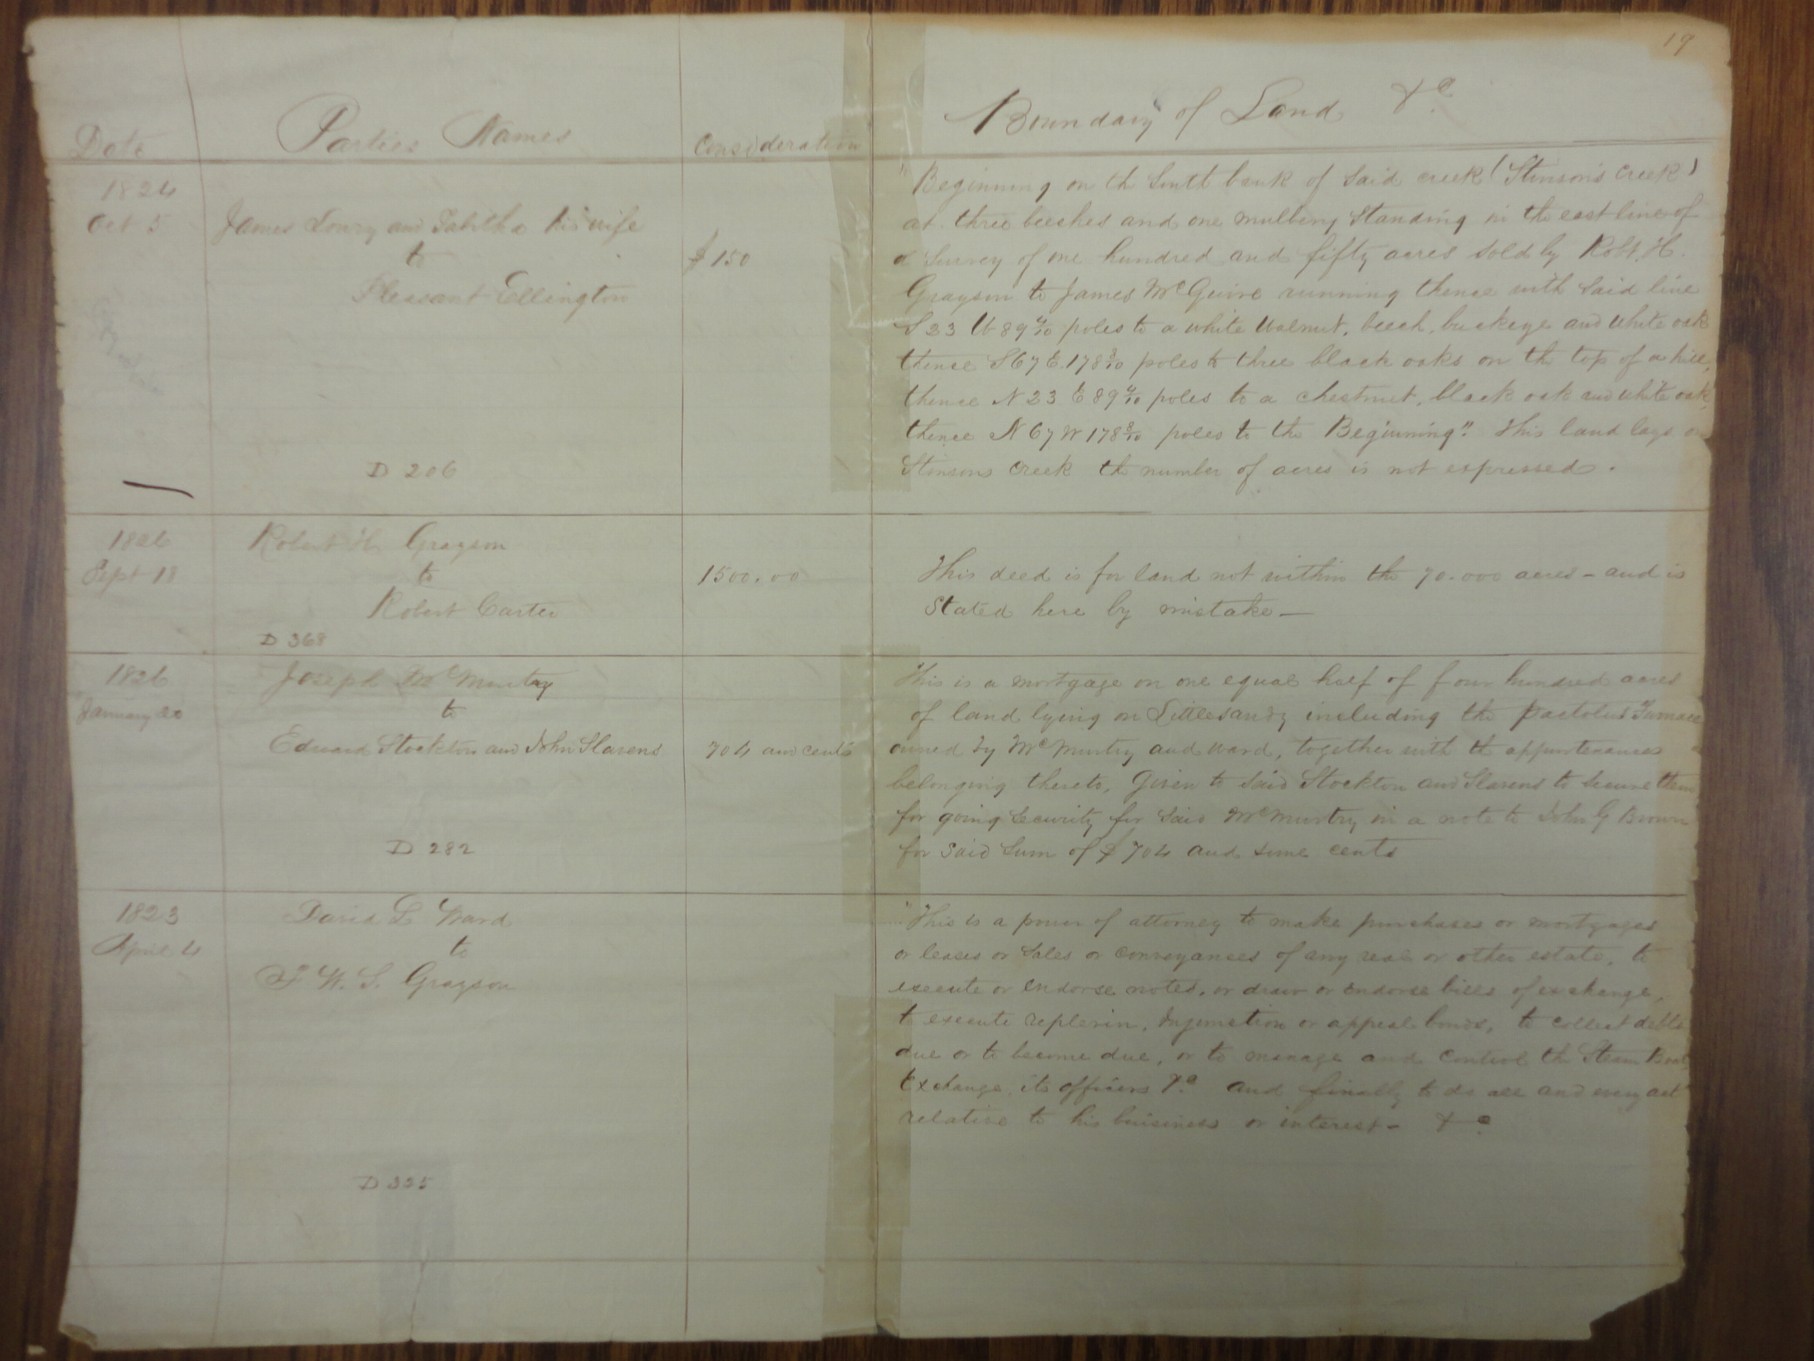 19
Date Parties Names Consideration Boundary of Land &c.
1824
Oct 5
James Lowry and Tabitha his wife
to
Pleasant Ellington
$150
D 206
"Beginning on the South bank of said creek (Stinson's Creek)
at three beeches and one mulberry standing in the east line of
a survey of one hundred and fifty acres sold by Robt. H.
Grayson to James McGuire running thence with said line
S 23 W 89 4/10 poles to a white walnut, beech, buckeye and white oak
thence S 67 E 178 8/10 poles to three black oaks on the top of a hill,
thence N 23 E 89 4/10 poles to a chestnut, black oak and white oak,
thence N 67 W 178 8/10 poles to the Beginning". This land lays on
Stinsons Creek the number of acres is not expressed.
1826
Sept 18
Robert H. Grayson
to
Robert Carter
D 368
1500.00
This deed is for land not within the 70.000 acres - and is
stated here by mistake —
1826
January 20
Joseph McMurtry
to
Edward Stockton and John Slavens
D 282
704 and cents
This is a mortgage on one equal half of four hundred acres
of land lying on Little Sandy including the Pactolus Furnace
owned by McMurtry and Ward, together with the appurtenances
belonging thereto, Given to said Stockton and Slavens to secure them
for going security for said McMurtry in a note to John G Brown
for said sum of $704 and some cents
1823
April 4
David L Ward
to
F W. S. Grayson
D 335
"This is a power of attorney to make purchases or mortgages
or leases or sales or conveyances of any real or other estate, to
execute or endorse notes, or draw or endorse bills of exchange,
to execute replevin, Injunction or appeal bonds, to collect debts
due or to become due, or to manage and control the Steam Boat
Exchange, its officers &c. and finally to do all and every act
relative to his buisiness or interest - &c.